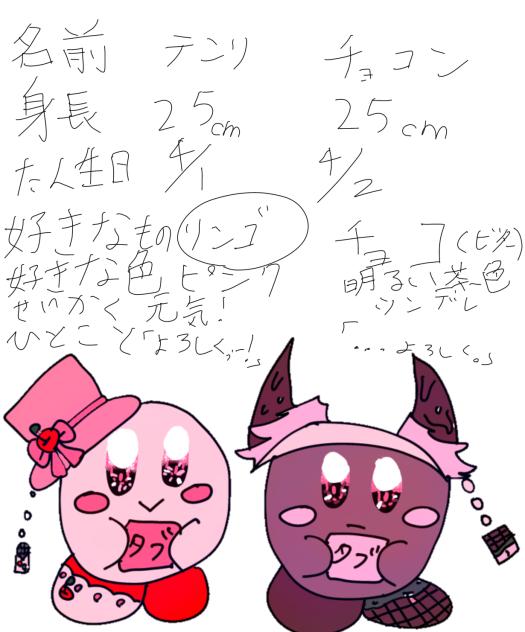 名前 テンリ チョコン
身長 25cm 25cm
たん生日 4/1 4/2
好きなもの リンゴ チョコ(ビター)
好きな色 ピンク 明るい茶色
せいかく 元気! ツンデレ
ひとこと「よろしくー!」 「...よろしく。」
タブ タブ